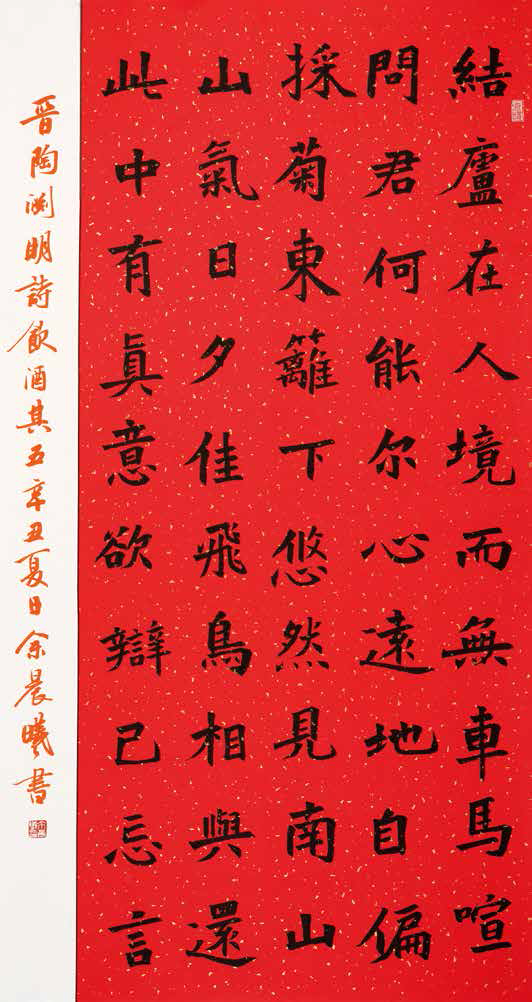 結廬在人境而無車馬喧
問君何能尔心遠地自偏
採菊東籬下悠然見南山
山氣日夕佳飛鳥相與還
此中有真意欲辯已忘言
晉陶渊明詩飲酒其五辛丑夏日余晨曦書